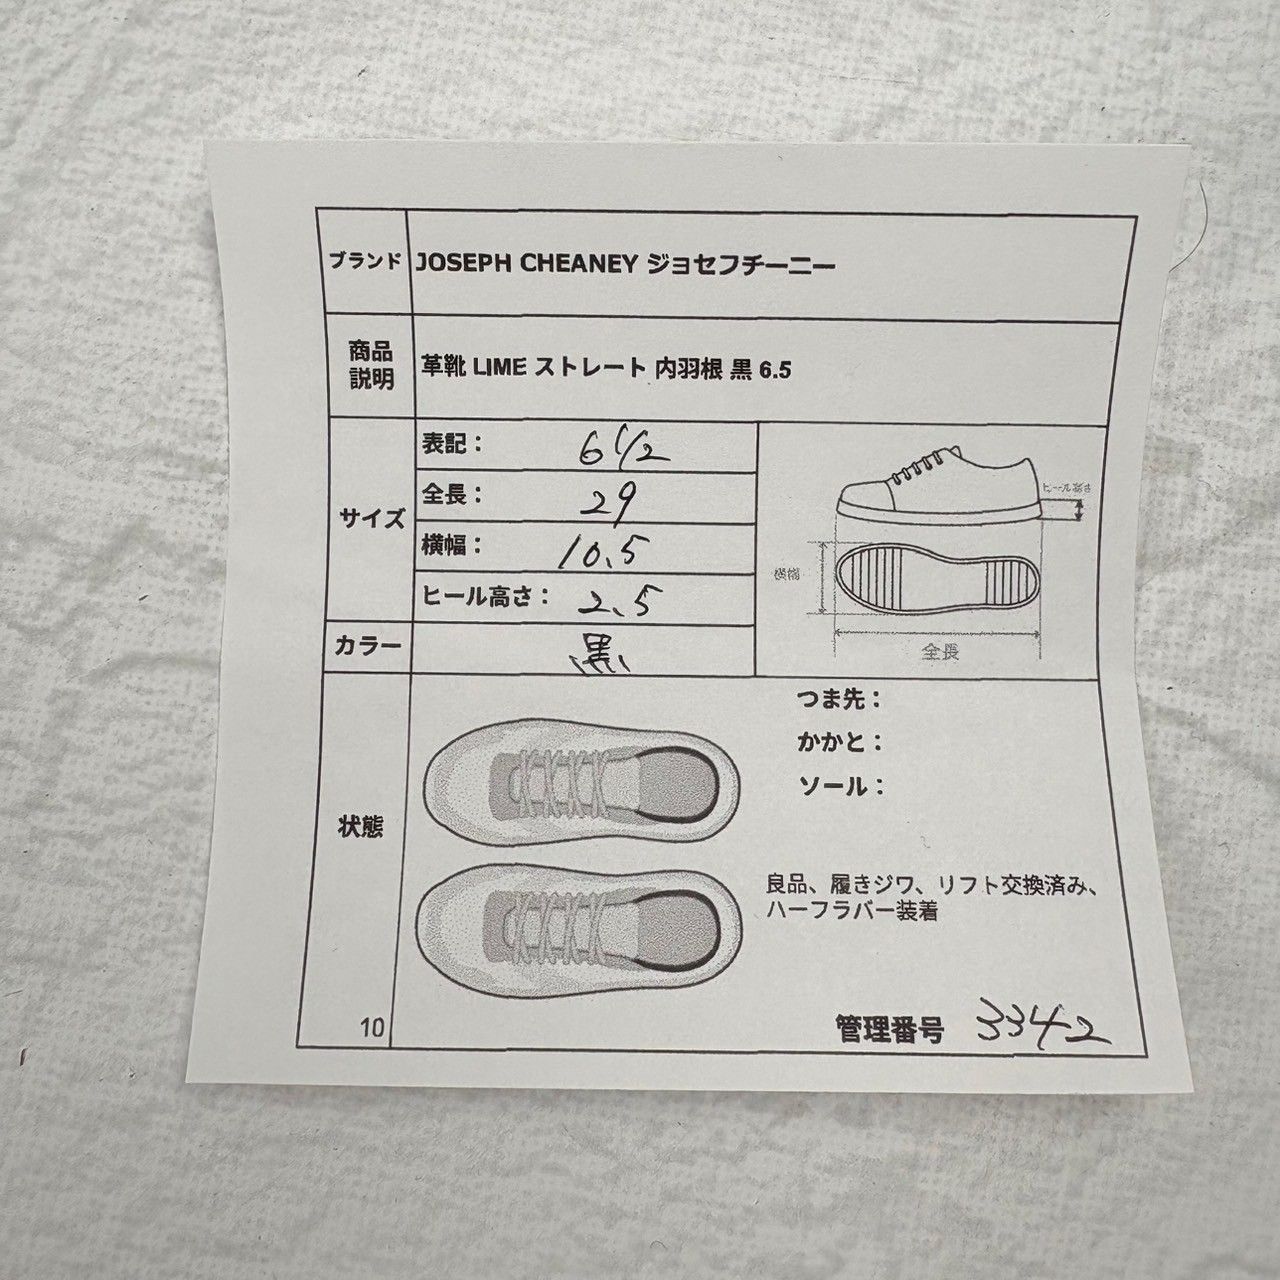 ブランド JOSEPH CHEANEY ジョセフチーニー
商品説明 革靴 LIME ストレート 内羽根 黒 6.5
サイズ
表記： 6 1/2
全長： 29
横幅： 10.5
ヒール高さ： 2.5
ヒール高さ
横幅
全長
カラー 黒
状態
つま先：
かかと：
ソール：
良品、履きジワ、リフト交換済み、
ハーフラバー装着
10
管理番号 3342